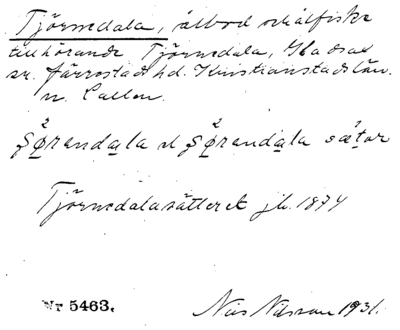 Tjörnedala, ålbod o. ålfiske
tillhörande Tjörnedala, Gladsax
sn. Järrestads hd. Kristianstads län.
n.
2 2
Şørandạla el Şørandạla sætar
Tjörnedalasätteret jb. 1874
Nr 5463.
Nils Nilsson 1931.